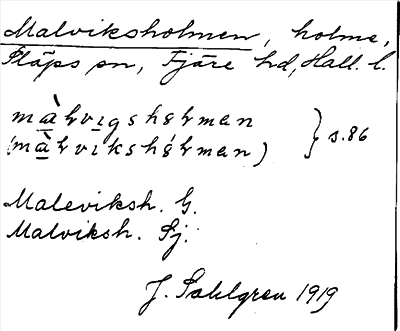 Malviksholmen, holme,
Släps sn, Fjäre hd, Hall. l.
màlvigshólman
(màlvikshólman) } s. 86
Maleviksh. G.
Malviksh. Sj.
J. Sahlgren 1919